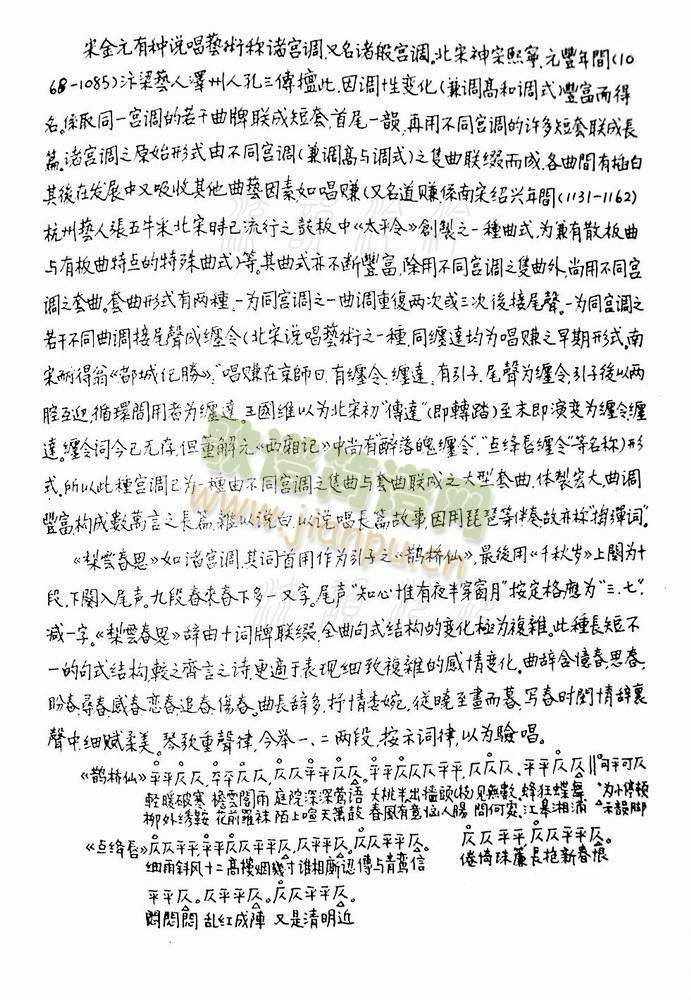 宋金元有种说唱藝術称诸宫调,又名诸般宫调。北宋神宗熙寧、元豐年間(10
68-1085)汴梁藝人澤州人孔三傳擅此,因调性变化(兼调髙和调式)豐富而得
名。係取同一宫调的若干曲牌联成短套,首尾一韻,再用不同宫调的许多短套联成長
篇。诸宫调之原始形式由不同宫调(兼调髙与调式)之隻曲联缀而成,各曲間有插白
其後在发展中又吸收其他曲藝因素,如唱赚(又名道赚係南宋绍兴年間(1131-1162)
杭州藝人張五牛采北宋時已流行之鼓板中《太平令》創製之一種曲式,为兼有散板曲
与有板曲特点的特殊曲式)等。其曲式亦不断豐富,除用不同宫调之隻曲外,尚用不同宫
调之套曲。套曲形式有两種,一为同宫调之一曲调重復两次或三次後接尾聲。一为同宫调之
若干不同曲调接尾聲成缠令(北宋说唱藝術之一種,同缠達均为唱赚之早期形式。南
宋耐得翁《都城纪勝》:"唱赚在京師日,有缠令、缠達,有引子、尾聲为缠令,引子後以两
腔互迎,循環間用者为缠達。王國维以为北宋初"傳達"(即轉踏)至末即演变为缠令缠
達。缠令词今已无存,但董解元《西厢记》中尚有"醉落魄缠令","点绛唇缠令"等名称)形
式。所以此種宫调已为一種由不同宫调之隻曲与套曲联成之大型套曲,体製宏大,曲调
豐富,构成數萬言之長篇,雜以说白,以说唱長篇故事,因用琵琶等伴奏故亦称"搊彈词"。
《梨雲春思》如诸宫调,其词首用作为引子之《鹊桥仙》,最後用《千秋岁》上闋为十
段,下闋入尾声。九段春來春下多一又字。尾声"知心惟有夜半穿窗月"按定格應为"三、七"
减一字。《梨雲春思》辞由十词牌联缀,全曲句式结构的变化極为複雜。此種長短不
一的句式结构,較之齊言之诗,更適于表现细致複雜的感情变化。曲辞含憶春、思春、
盼春、尋春、感春、恋春、追春、傷春。曲長辞多,抒情委婉,從曉至晝而暮,写春时閨情辞裏
聲中,细腻柔美。琴歌重聲律,今举一、二两段,按示词律,以为驗唱。
《鹊桥仙》平平仄仄,平平仄仄,仄仄平平仄仄,仄平平仄仄平平,仄仄仄、平平仄仄 ‖可平可仄
輕暖破寒 檐雲閣雨 庭院深深莺语 夭桃半出墙頭(杪)见無數、蜂狂蝶舞 为小停頓
柳外绣鞍 花前羅袜 陌上喧天箫鼓 春風有意恼人腸 問何處、江皋湘浦 示韻脚
《点绛唇》仄仄平平,平平仄仄平平仄。仄平平仄,仄仄平平仄。 仄仄平平,仄仄平平仄。
细雨斜风十二髙樓烟幾寸谁相廝認傳与青鸞信 倦倚珠簾長抱新春恨
平平仄。仄平平仄。仄仄平平仄。
悶悶悶 乱红成陣 又是清明近